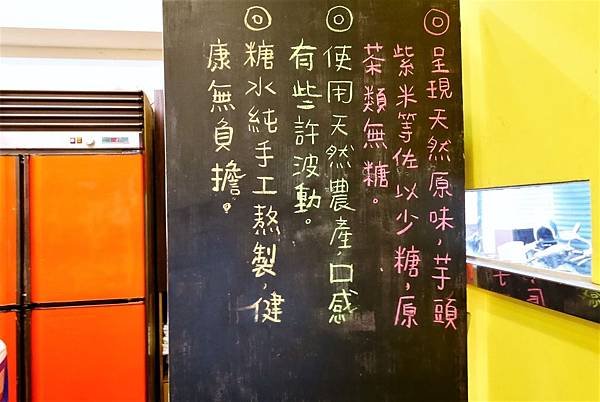 ◎呈現天然原味,芋頭
紫米等佐以少糖,原
茶類無糖。
◎使用天然農產,口感
有些許波動。
◎糖水純手工熬製,健
康無負擔。